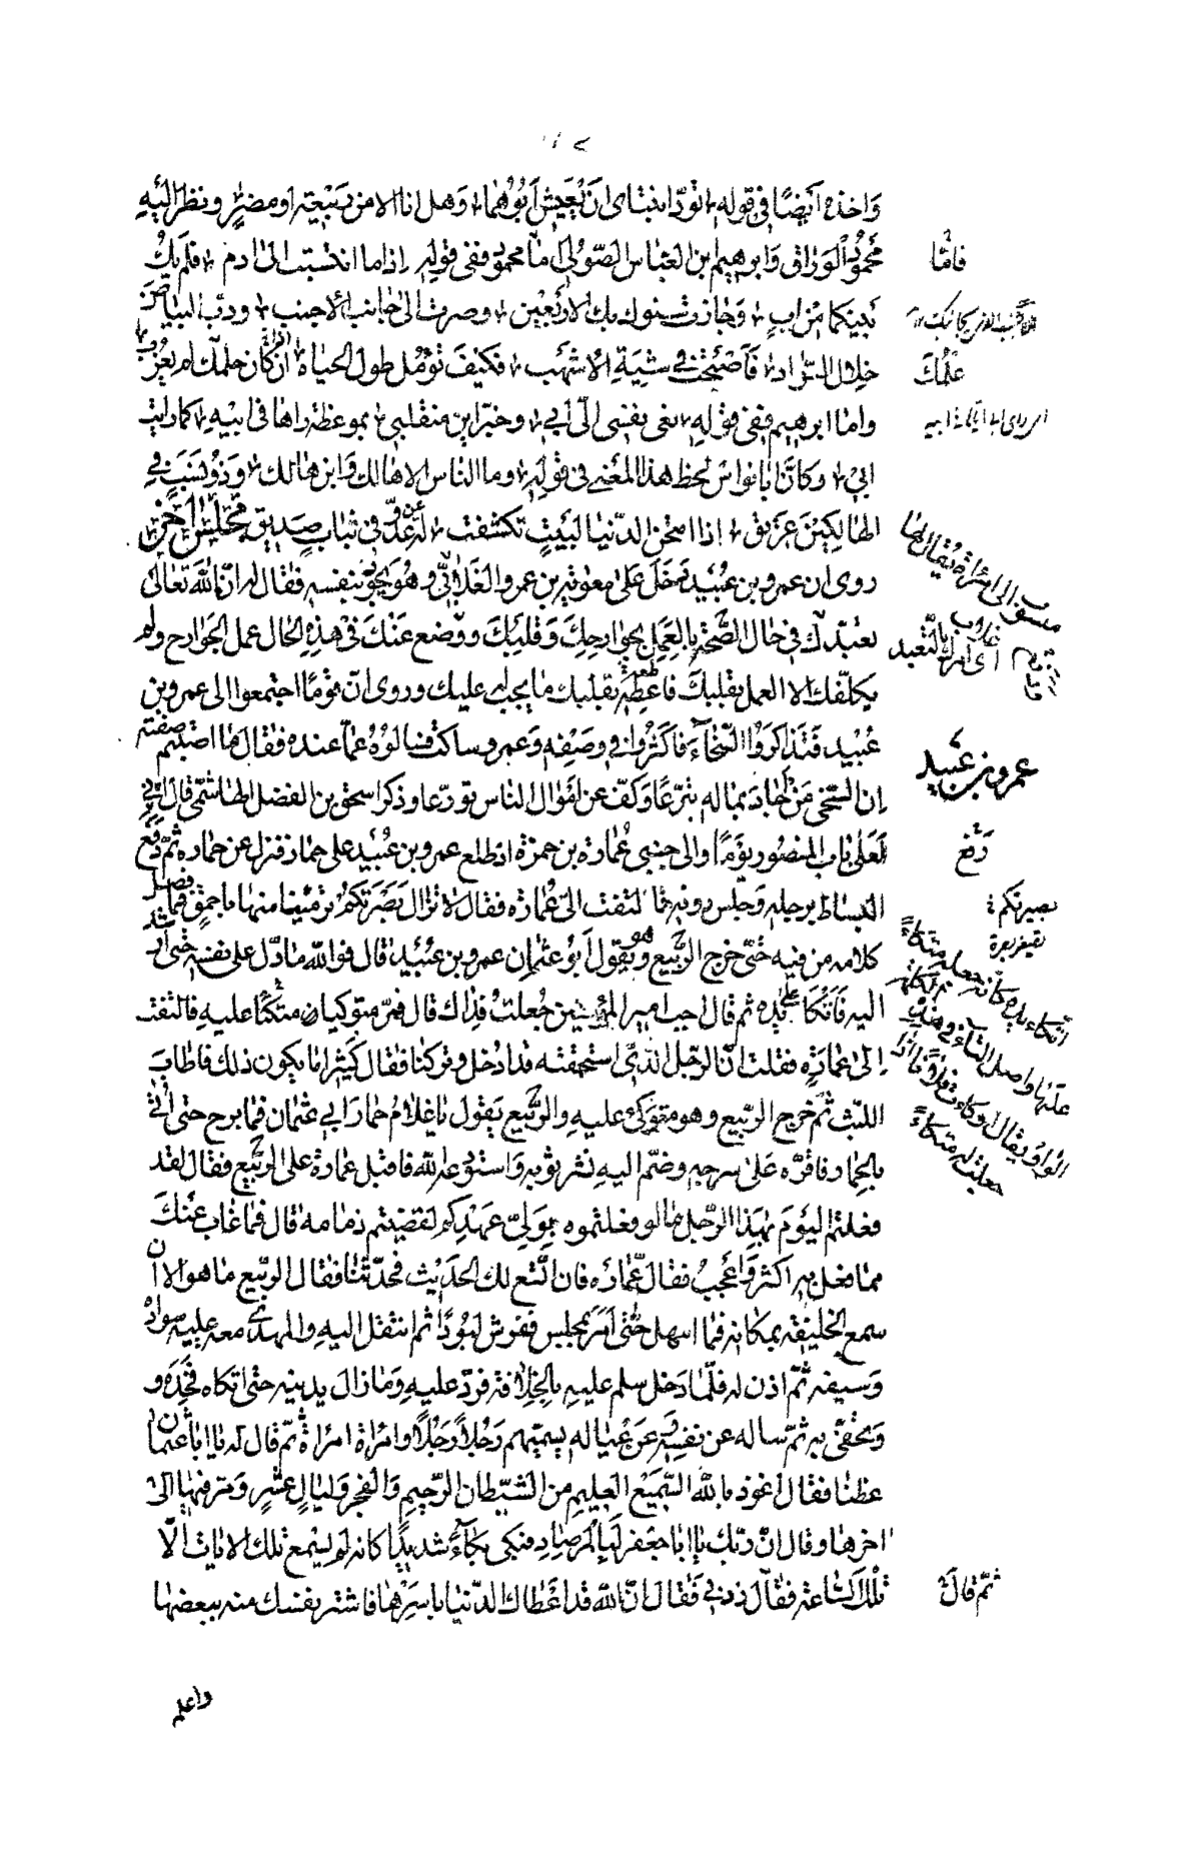 واخذه أيضًا في قوله تودّ ابنتاى ان يَعيش أبوهما وهل انا الا من ربيعة او مضر ونظر اليه
محمود الورّاق وابرهيم ابن العباس الصّولي امّا محمود ففي قوله اذا ما انتسبت الى ادم فلم يكُ
بينكما من ابٍ وجازت سنوك بك الاربعين وصرت الى جانب الاجنب ودبّ البياض
خلال السّواد فأصبحت في شية الاشهب فكيف تؤمّل طول الحياة اذا كان حلمك لم يعزب
واما ابرهيم ففي قوله نعى نفسي الىّ أبي وخبّر اين منقلبي بموعظة راها في ابيه كما رايت
ابي وكانّ ابانواس لحظ هذا المعنى في قوله وما الناس الا هالك وابن هالك وذو نسب في
الهالكين عريق اذا امتحن الدّنيا لبيب تكشفت له عن عدوّ في ثياب صديق مجلس اخر
روى ان عمرو بن عُبيد دخل على معوية بن عمرو الغلابيّ وهو يجود بنفسه فقال له انّ الله تعالى
تعبّدك في حال الصّحة بالعمل بجوارحك وقلبك ووضع عنك في هذه الحال عمل الجوارح ولم
يكلّفك الا العمل بقلبك فاعطه بقلبك ما يجب له عليك وروى انّ قومًا اجتمعوا الى عمرو بن
عُبيد فتذاكروا السّخاء فاكثروا في وصفه وعمرو ساكت فسالوه عمّا عنده فقال ما اصبتم صفته
إن السّخي من جاد بماله تبرّعًا وكفّ عن اموال الناس تورّعا وذكر اسحق بن الفضل الهاشمّي قال اني
لعلى باب المنصور يومًا والى جنبي عُمارة بن حمزة اذ طلع عمرو بن عُبيد على حمار فنزل عن حماره ثمّ دفع
البساط برجله وجلس دونه فالتفت الىّ عُمارة فقال لا تزال بصرتكم ترمينا منها باحمق فما فصل
كلامه من فيه حتى خرج الرّبيع وهو يقول أبو عثمان عمرو بن عُبيد قال فوالله ما دلّ على نفسه حتى ارشد
اليه فأتكأه يده ثم قال اجب امير المؤمنين جُعلت فداك قال فمرّ متوكيا متكئًا عليه فالتفت
إلى عُمارة فقلت انّ الرّجل الذي استحمقته قد ادخل وتركنا فقال كثيرًا ما يكون ذلك فاطال
اللبث ثم خرج الرّبيع وهو متوكئ عليه والرّبيع يقول يا غلام حمار ابي عثمان فما برح حتى أتى
بالحمار فاقرّه على سرجه وضمّ اليه نشر ثوبه واستودعه الله فاقبل عمارة على الرّبيع فقال لقد
فعلتم اليوم بهذا الرّجل ما لو فعلتموه بوليّ عهدكم لقضيتم ذمامه قال فما غاب عنك
مما فعل به اكثر واعجب فقال عُماره فان اتّسع لك الحديث فحدّثنا فقال الرّبيع ما هو الا ان
سمع الخليفة بمكانه فما امهل حتّى امر بمجلس ففرش لبودًا ثم انتقل اليه والمهدي معه عليه سواده
وسيفه ثمّ اذن له فلمّا دخل سلم عليه بالخلافة فردّ عليه وما زال يدنيه حتى اتكاه فخذه و
وتحفّى به ثمّ ساله عن نفسه وعن عياله يسمّيهم رجُلاً رجُلاً وامراة امراة ثمّ قال له يا ابا عثمان
عظنا فقال اعوذ بالله السّميع العليم من الشيطان الرّجيم والفجر وليال عشر ومرّ فيها الى
اخرها وقال انّ ربّك يا ابا جعفر لبالمرصاد فبكى بكاءً شديدًا كانه لم يسمع تلك الايات الّا
تلك السّاعة فقال زدني فقال انّ الله قد اعطاك الدّنيا باسرها فاشتر نفسك منه ببعضها
واعلم
فامّا
علمك
عمرو بن عُبيد
دَفع
بصيرتكم
ثمّ قال